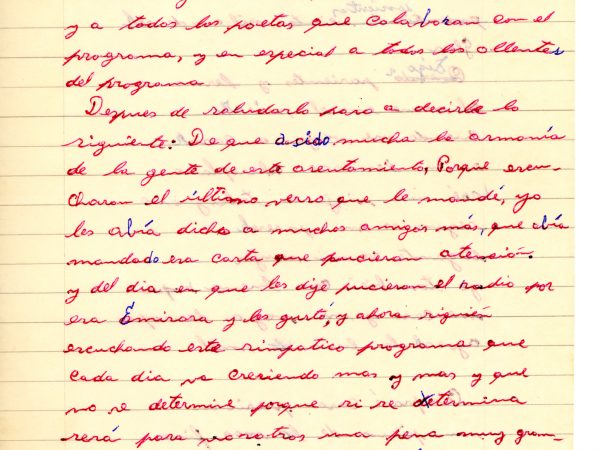 y a todos los poetas que colaboran con el
programa, y en especial a todos los ollentes
del programa
Depues de saludarlo paso a decirle lo
siguiente: De que a sido mucha la armonía
de la gente de este asentamiento, Porque escu-
charon el último verso que le mandé, yo
les abía dicho a muchos amigos más, que abía
mandado esa carta que pucieran atención.
y del dia en que les dije pucieron el radio por
esa Emisora y les gustó, y ahora siguién
escuchando este simpatico programa que
cada dia va creciendo mas y mas y que
no se determine porque si se determina
será para nosotros una pena muy gran-